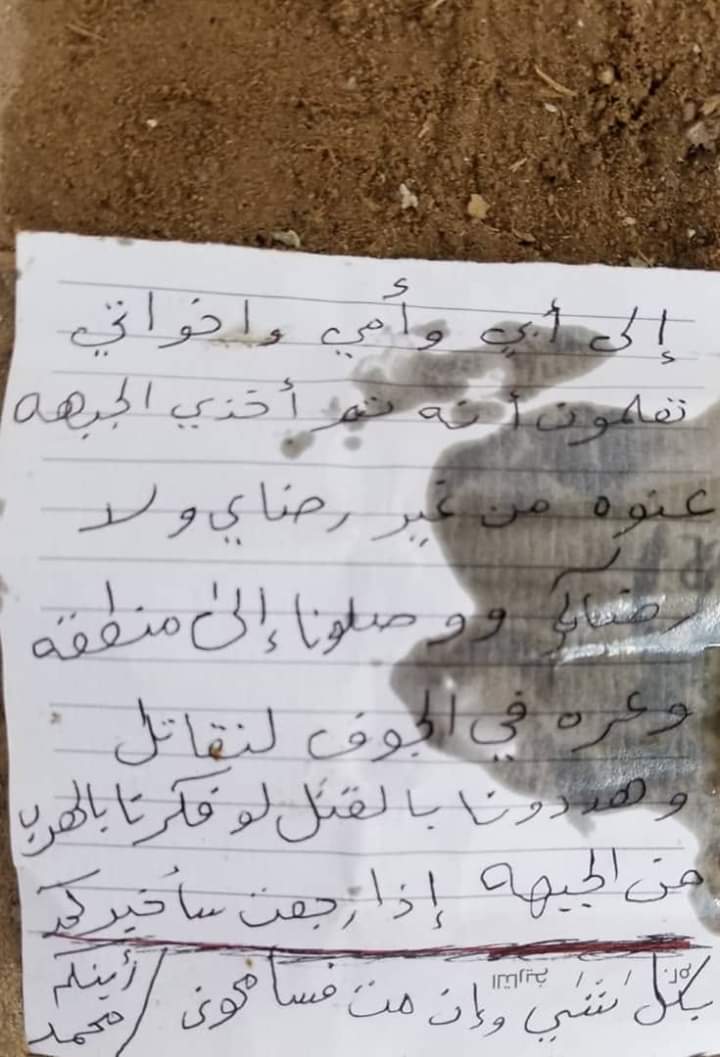 إلى أبي وأمي واخواتي
تعلمون أنه تم أخذي الجبهه
عنوه من غير رضاي ولا
رضاكم ووصلونا إلى منطقه
وعره في الجوف لنقاتل
وهددونا بالقتل لو فكرنا بالهرب
من الجبهه إذا رجعت سأخبركم
بكل شي وإن مت فسامحوني / أبنكم
محمد
التاريخ